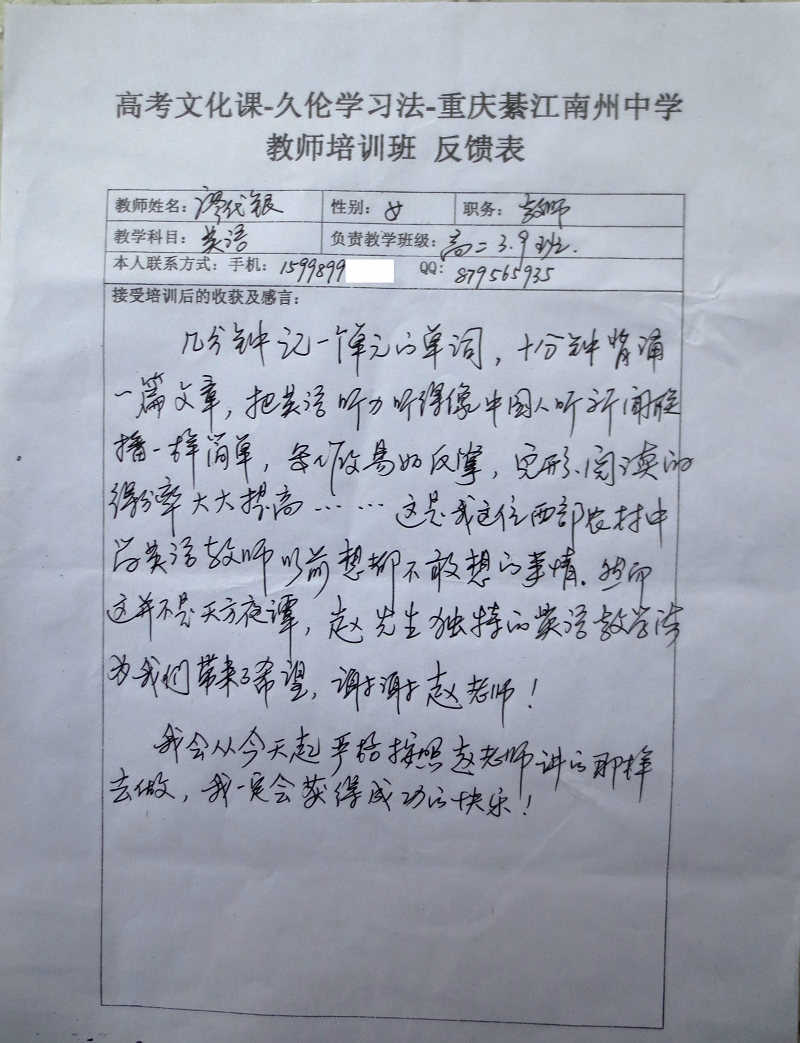 高考文化课-久伦学习法-重庆綦江南州中学
教师培训班 反馈表
教师姓名：廖代银 性别：女 职务：教师
教学科目：英语 负责教学班级：高二3.9班.
本人联系方式：手机：1599899 QQ：879565935
接受培训后的收获及感言：
几分钟记一个单元的单词，十分钟背诵
一篇文章，把英语听力听得像中国人听新闻联
播一样简单，写作改易如反掌，完形、阅读的
得分率大大提高……这是我这位西部农村中
学英语教师以前想都不敢想的事情。然而
这并不是天方夜谭，赵先生独特的英语教学法
为我们带来了希望，谢谢赵老师！
我会从今天起严格按照赵老师讲的那样
去做，我一定会获得成功的快乐！